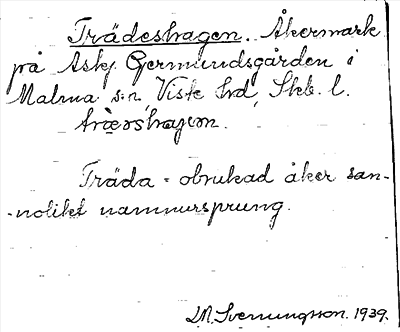 Trädeshagen. Åkermark
på Asky Germundsgården i
Malma s:n, Viste hrd, Skb. l.
Träda = obrukad åker san-
-nolikt namnursprung.
M. Svenungsson. 1939.